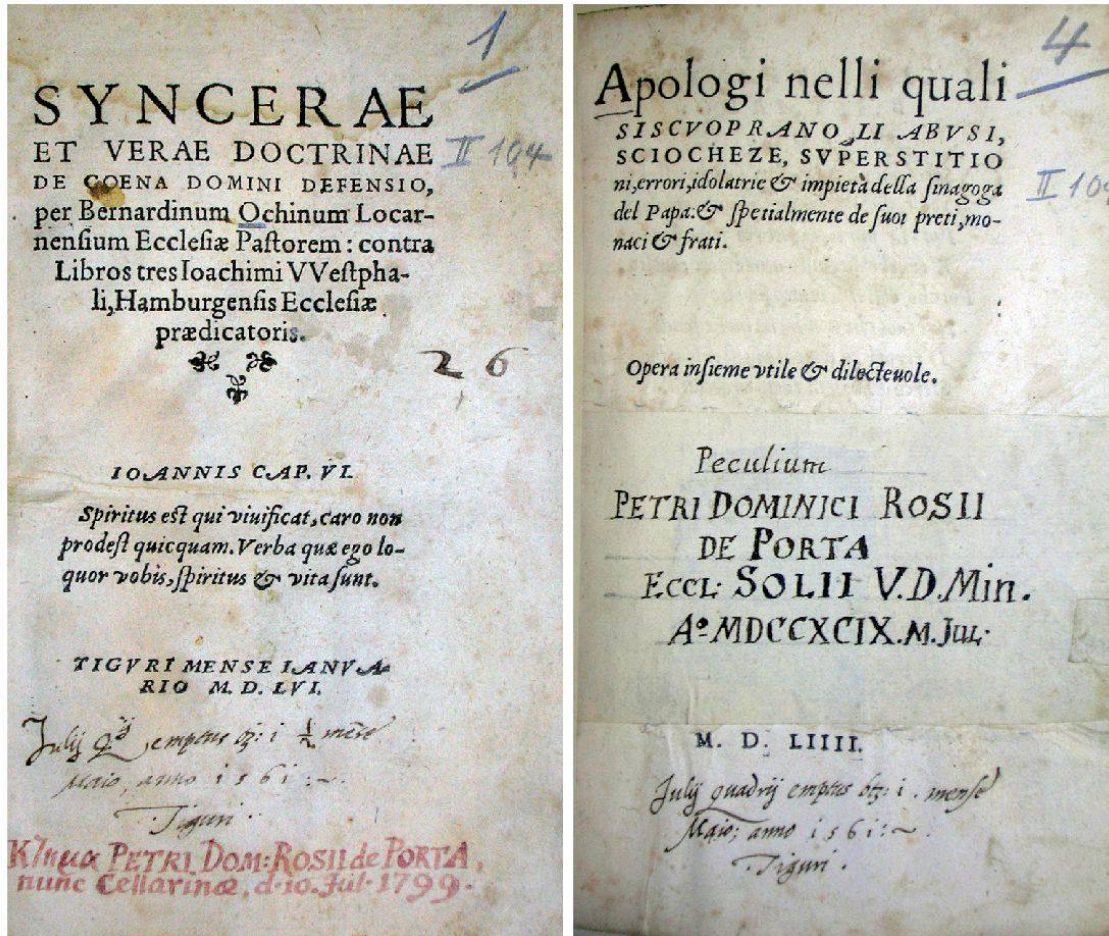 1
SYNCERAE
ET VERAE DOCTRINAE II 104
DE COENA DOMINI DEFENSIO,
per Bernardinum Ochinum Locar-
nensium Ecclesiæ Paſtorem: contra
Libros tres Ioachimi VVeſtpha-
li, Hamburgensis Ecclesiæ
prædicatoris.
26
IOANNIS CAP. VI.
Spiritus est qui viuificat, caro non
prodeſt quicquam. Verba quæ ego lo-
quor vobis, ſpiritus & vita ſunt.
TIGVRI MENSE IANVA-
RIO M. D. LVI.
Julij emptus btz: i ½ mēse
Maio, anno 1561:~.
Tiguri.
PETRI DOM: ROSII de PORTA,
nunc Cellarinæ, d. 10. Jul. 1799.
4
Apologi nelli quali
SISCVOPRANO LI ABVSI,
SCIOCHEZE, SVPERSTITIO
ni, errori, idolatrie & impietà della ſinagoga II 10
del Papa: & ſpetialmente de ſuoi preti, mo-
naci & frati.
Opera inſieme vtile & dilecteuole.
Peculium
PETRI DOMINICI ROSII
DE PORTA
ECCL: SOLII V.D.Min.
Aº MDCCXCIX.M.Jul.
M. D. LIIII.
Julij quadrij emptus btz: i . mense
Maio; anno 1561:~.
Tiguri.